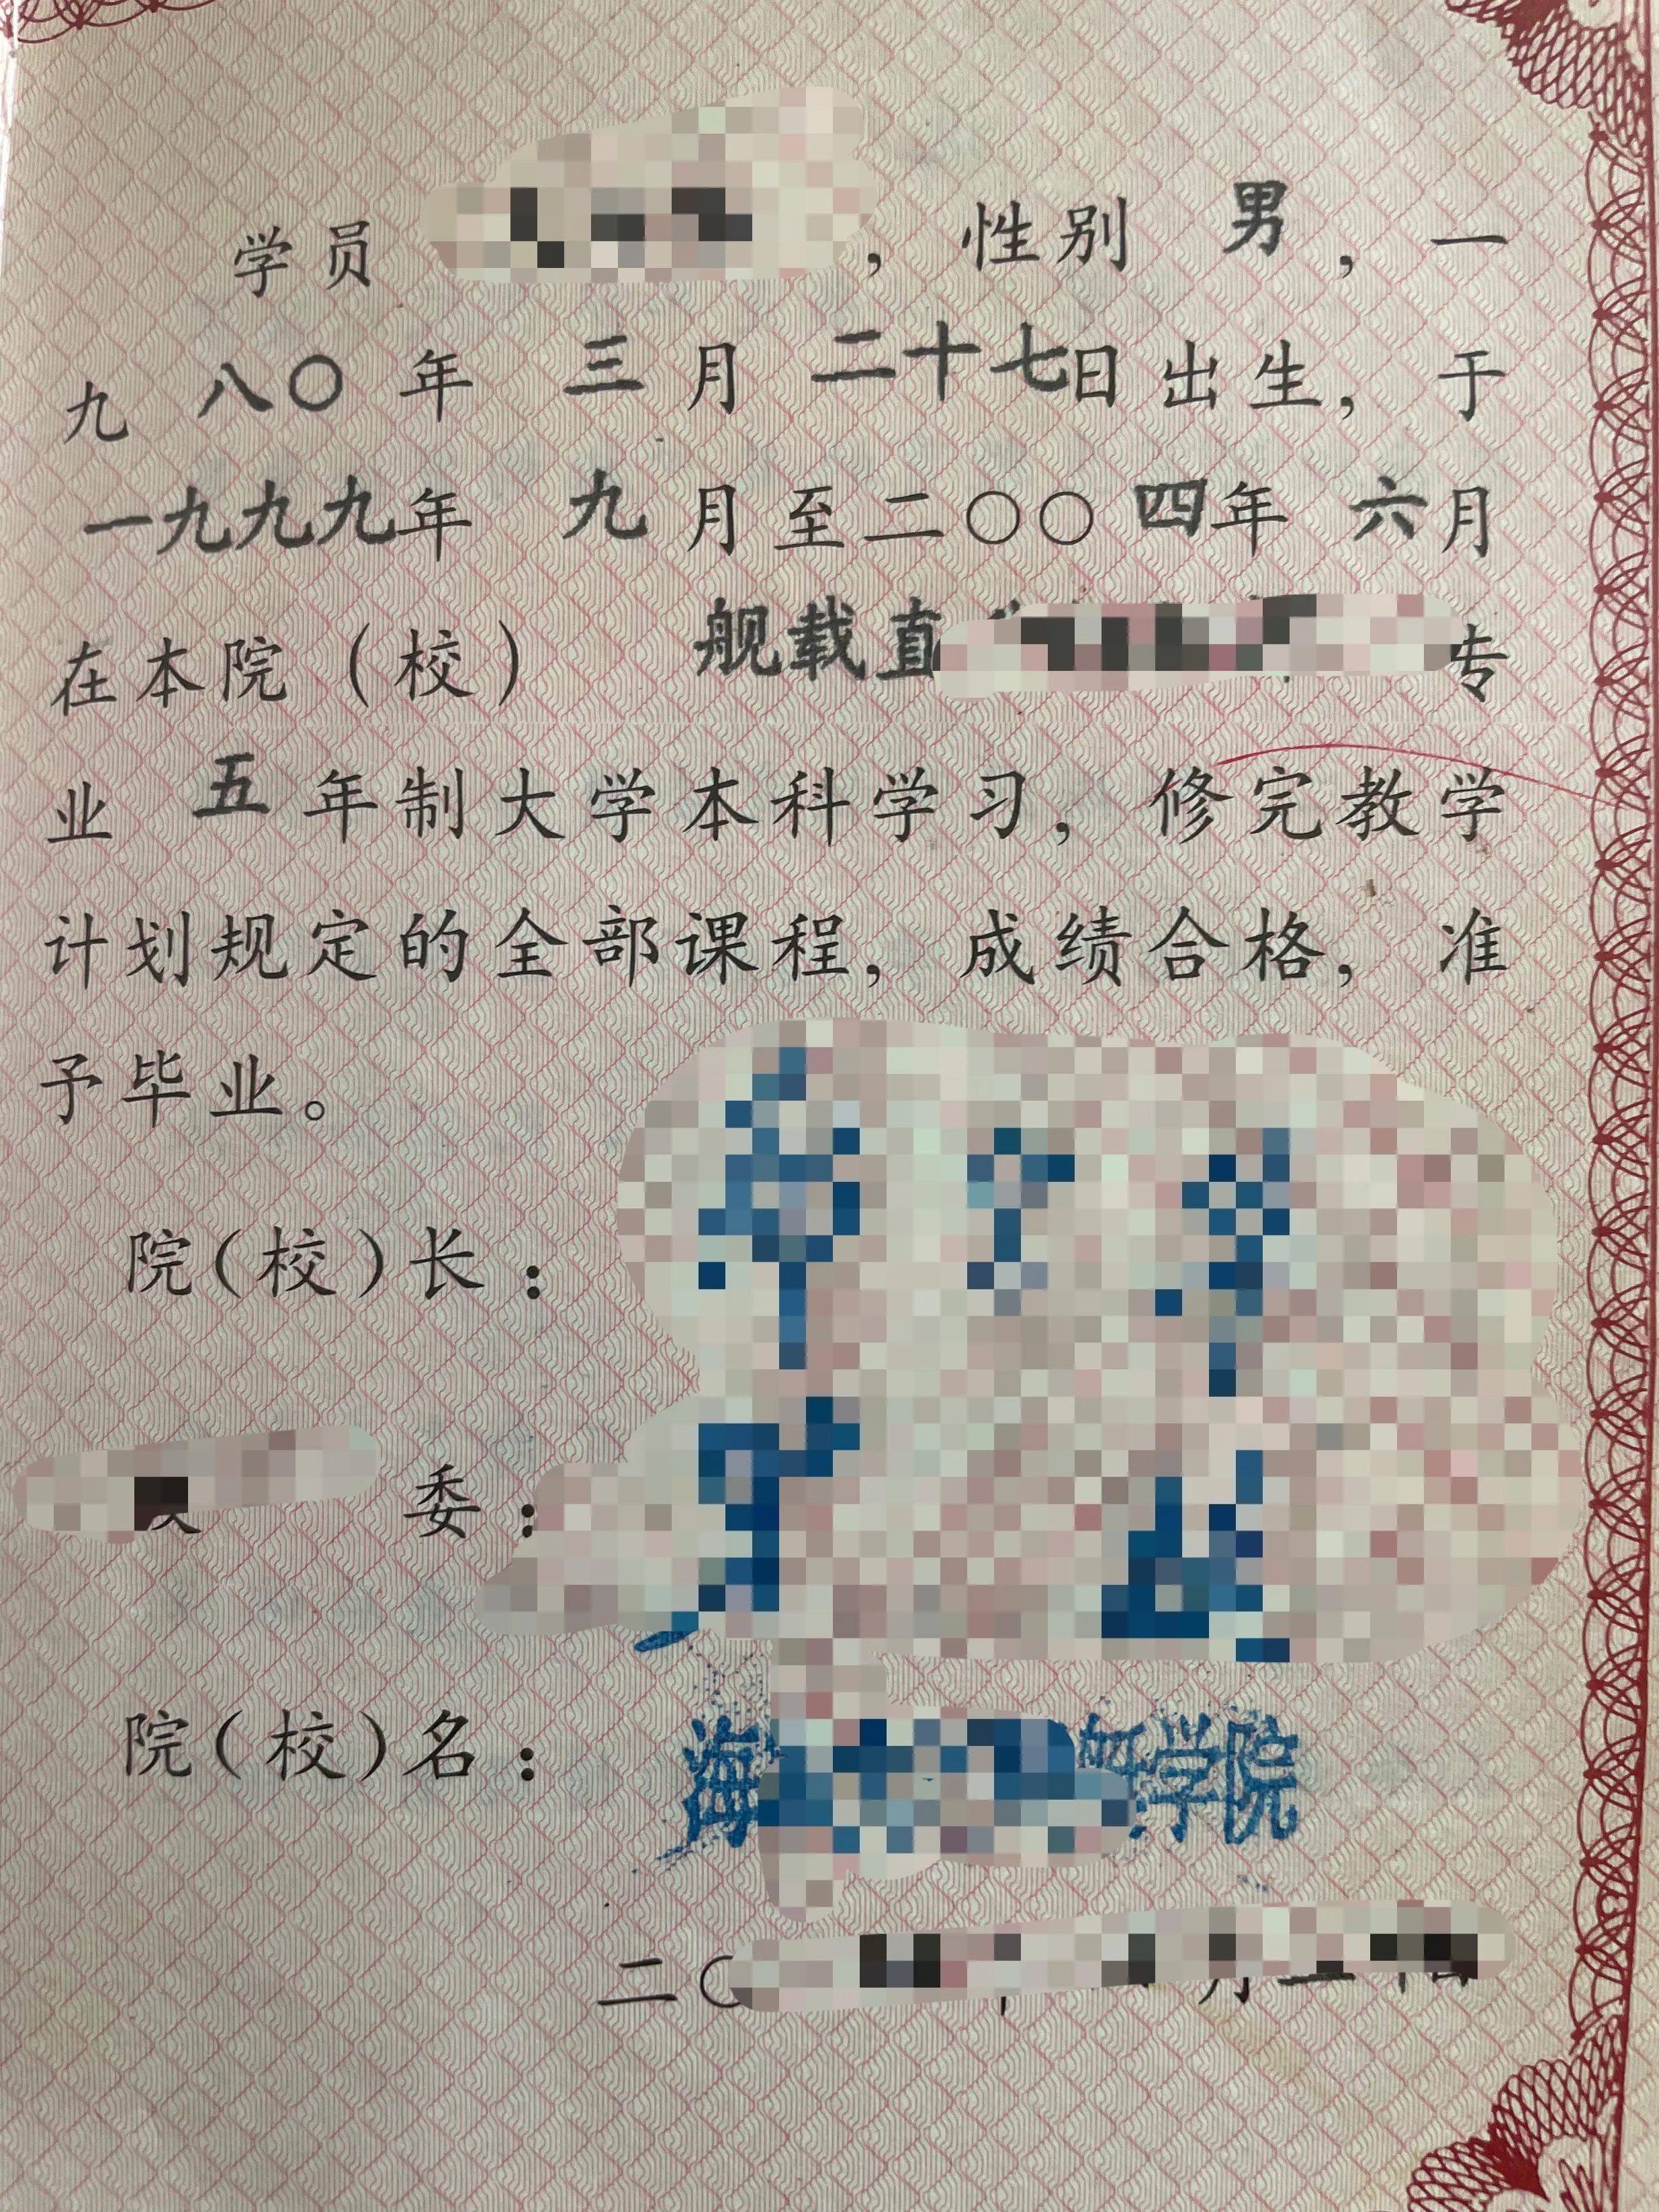 学员 ，性别 男，一
九八〇年 三月 二十七日出生，于
一九九九年 九月至二〇〇四年 六月
在本院（校） 舰载直 专
业 五年制大学本科学习，修完教学
计划规定的全部课程，成绩合格，准
予毕业。
院（校）长：
委：
院（校）名：海 学院
二〇